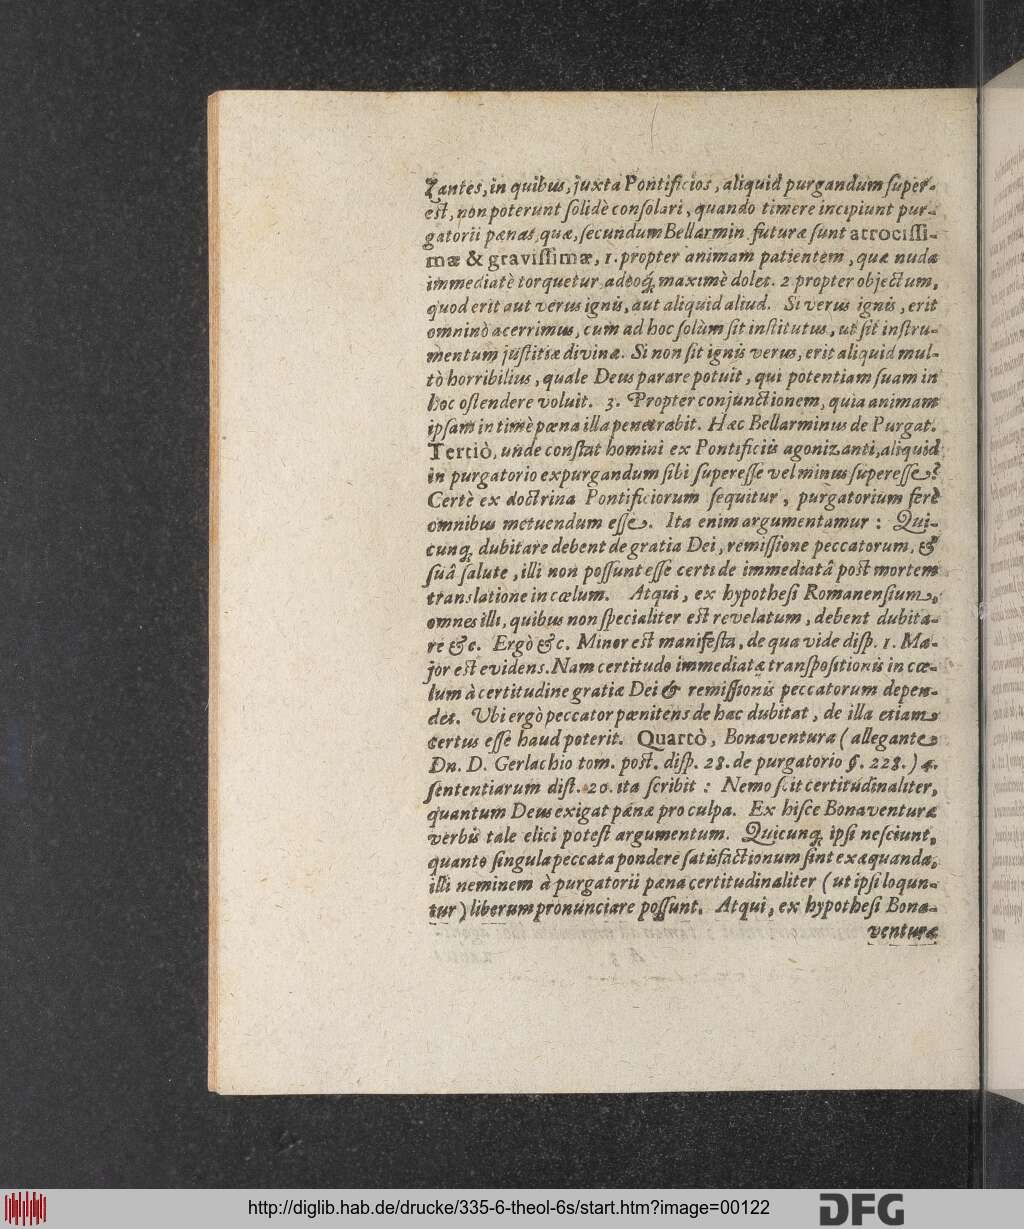 zantes, in quibus, juxta Pontificios, aliquid purgandum super-
est, non poterunt solidè consolari, quando timere incipiunt pur-
gatorii pœnas, quæ, secundum Bellarmin. futuræ sunt atrocissi-
mæ & gravissimæ, 1. propter animam patientem, quæ nuda
immediatè torquetur, adeoq́; maximè dolet. 2 propter objectum,
quod erit aut verus ignis, aut aliquid aliud. Si verus ignis, erit
omninò acerrimus, cum ad hoc solùm sit institutus, ut sit instru-
mentum justitiæ divinæ. Si non sit ignis verus, erit aliquid mul-
tò horribilius, quale Deus parare potuit, qui potentiam suam in
hoc ostendere voluit. 3. Propter conjunctionem, quia animam
ipsam intimè pœna illa penetrabit. Hæc Bellarminus de Purgat.
Tertiò, unde constat homini ex Pontificiis agonizanti, aliquid
in purgatorio expurgandum sibi superesse vel minus superesse?
Certè ex doctrina Pontificiorum sequitur, purgatorium ferè
omnibus metuendum esse. Ita enim argumentamur: Qui-
cunq; dubitare debent de gratia Dei, remissione peccatorum, &
suâ salute, illi non possunt esse certi de immediatâ post mortem
translatione in cœlum. Atqui, ex hypothesi Romanensium,
omnes illi, quibus non specialiter est revelatum, debent dubita-
re &c. Ergò &c. Minor est manifesta, de qua vide disp. 1. Ma-
jor est evidens. Nam certitudo immediatæ transpositionis in cœ-
lum à certitudine gratiæ Dei & remissionis peccatorum depen-
det. Ubi ergò peccator pœnitens de hac dubitat, de illa etiam
certus esse haud poterit. Quartò, Bonaventura (allegante
Dn. D. Gerlachio tom. post. disp. 28. de purgatorio §. 228.) 4.
sententiarum dist. 20. ita scribit: Nemo scit certitudinaliter,
quantum Deus exigat pœnæ pro culpa. Ex hisce Bonaventuræ
verbis tale elici potest argumentum. Quicunq; ipsi nesciunt,
quanto singula peccata pondere satisfactionum sint exæquanda,
illi neminem à purgatorii pœna certitudinaliter (ut ipsi loqun-
tur) liberum pronunciare possunt. Atqui, ex hypothesi Bona-
venturæ
http://diglib.hab.de/drucke/335-6-theol-6s/start.htm?image=00122
DFG